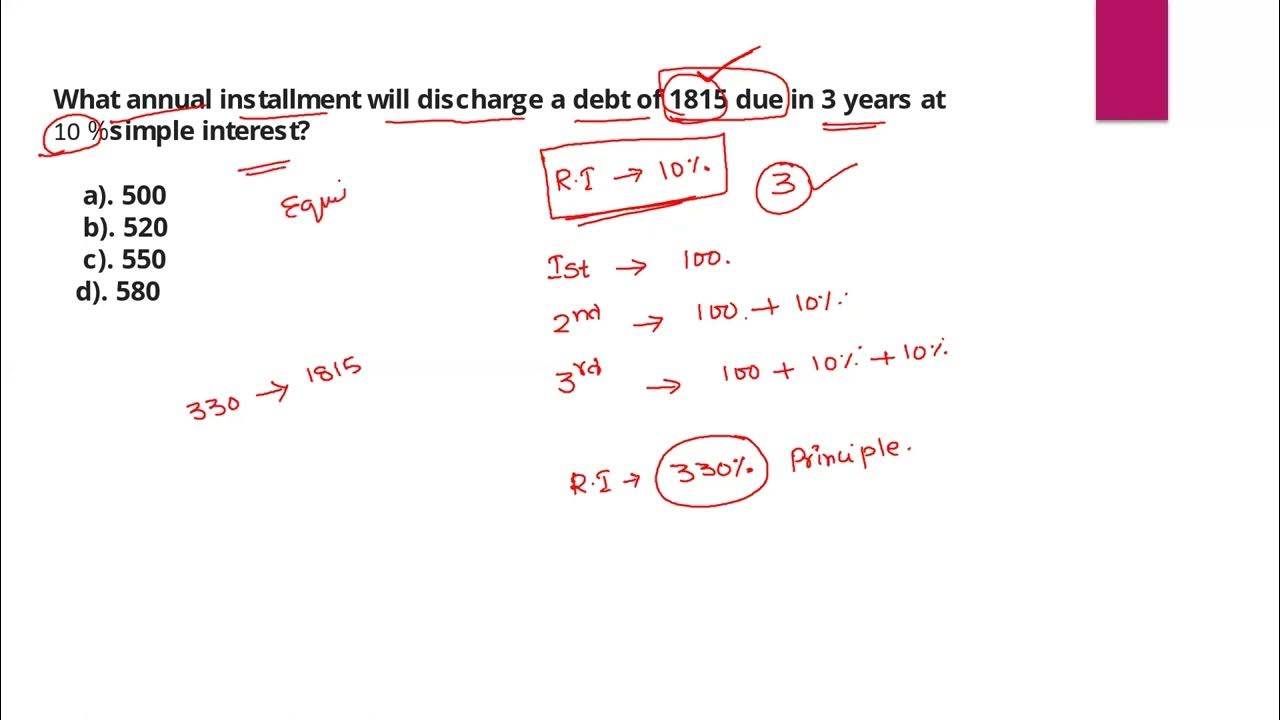 What annual installment will discharge a debt of 1815 due in 3 years at
10 %simple interest?
a). 500
b). 520
c). 550
d). 580
Equi
R.I → 10%.
3
Ist → 100.
2nd → 100. + 10%.
3rd → 100 + 10% + 10%.
330 → 1815
R.I → 330%. Principle.